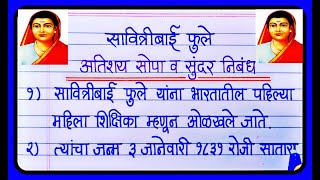 सावित्रीबाई फुले
अतिशय सोपा व सुंदर निबंध
१) सावित्रीबाई फुले यांना भारतातील पहिल्या
महिला शिक्षिका म्हणून ओळखले जाते.
२) त्यांचा जन्म ३ जानेवारी १८३१ रोजी सातारा